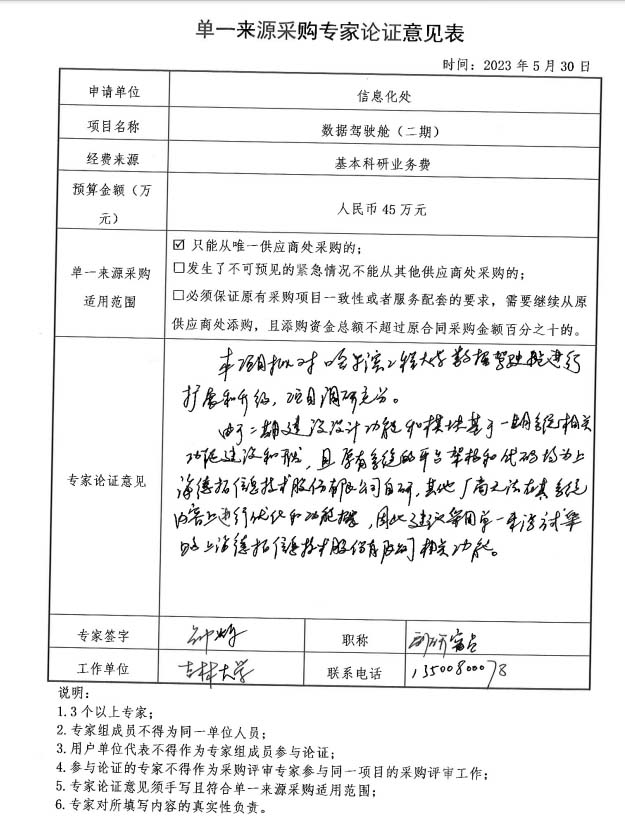 单一来源采购专家论证意见表
时间：2023 年 5 月 30 日
申请单位 信息化处
项目名称 数据驾驶舱（二期）
经费来源 基本科研业务费
预算金额（万元） 人民币 45 万元
单一来源采购适用范围
☑ 只能从唯一供应商处采购的；
□发生了不可预见的紧急情况不能从其他供应商处采购的；
□必须保证原有采购项目一致性或者服务配套的要求，需要继续从原
供应商处添购，且添购资金总额不超过原合同采购金额百分之十的。
专家论证意见
本项目拟对哈尔滨工程大学数据驾驶舱进行
扩展和升级，项目调研充分。
由于二期建设设计功能和模块基于一期系统相关
功能建设和开发，且原有系统的平台架构和代码均为上
海德拓信息技术股份有限公司自研，其他厂商无法在其系统
内容上进行优化和功能，因此建议采用单一来源
上海德拓信息技术股份有限公司相关功能。
专家签字 职称
工作单位 吉林大学 联系电话 13500800078
说明：
1.3 个以上专家；
2.专家组成员不得为同一单位人员；
3.用户单位代表不得作为专家组成员参与论证；
4.参与论证的专家不得作为采购评审专家参与同一项目的采购评审工作；
5.专家论证意见须手写且符合单一来源采购适用范围；
6.专家对所填写内容的真实性负责。